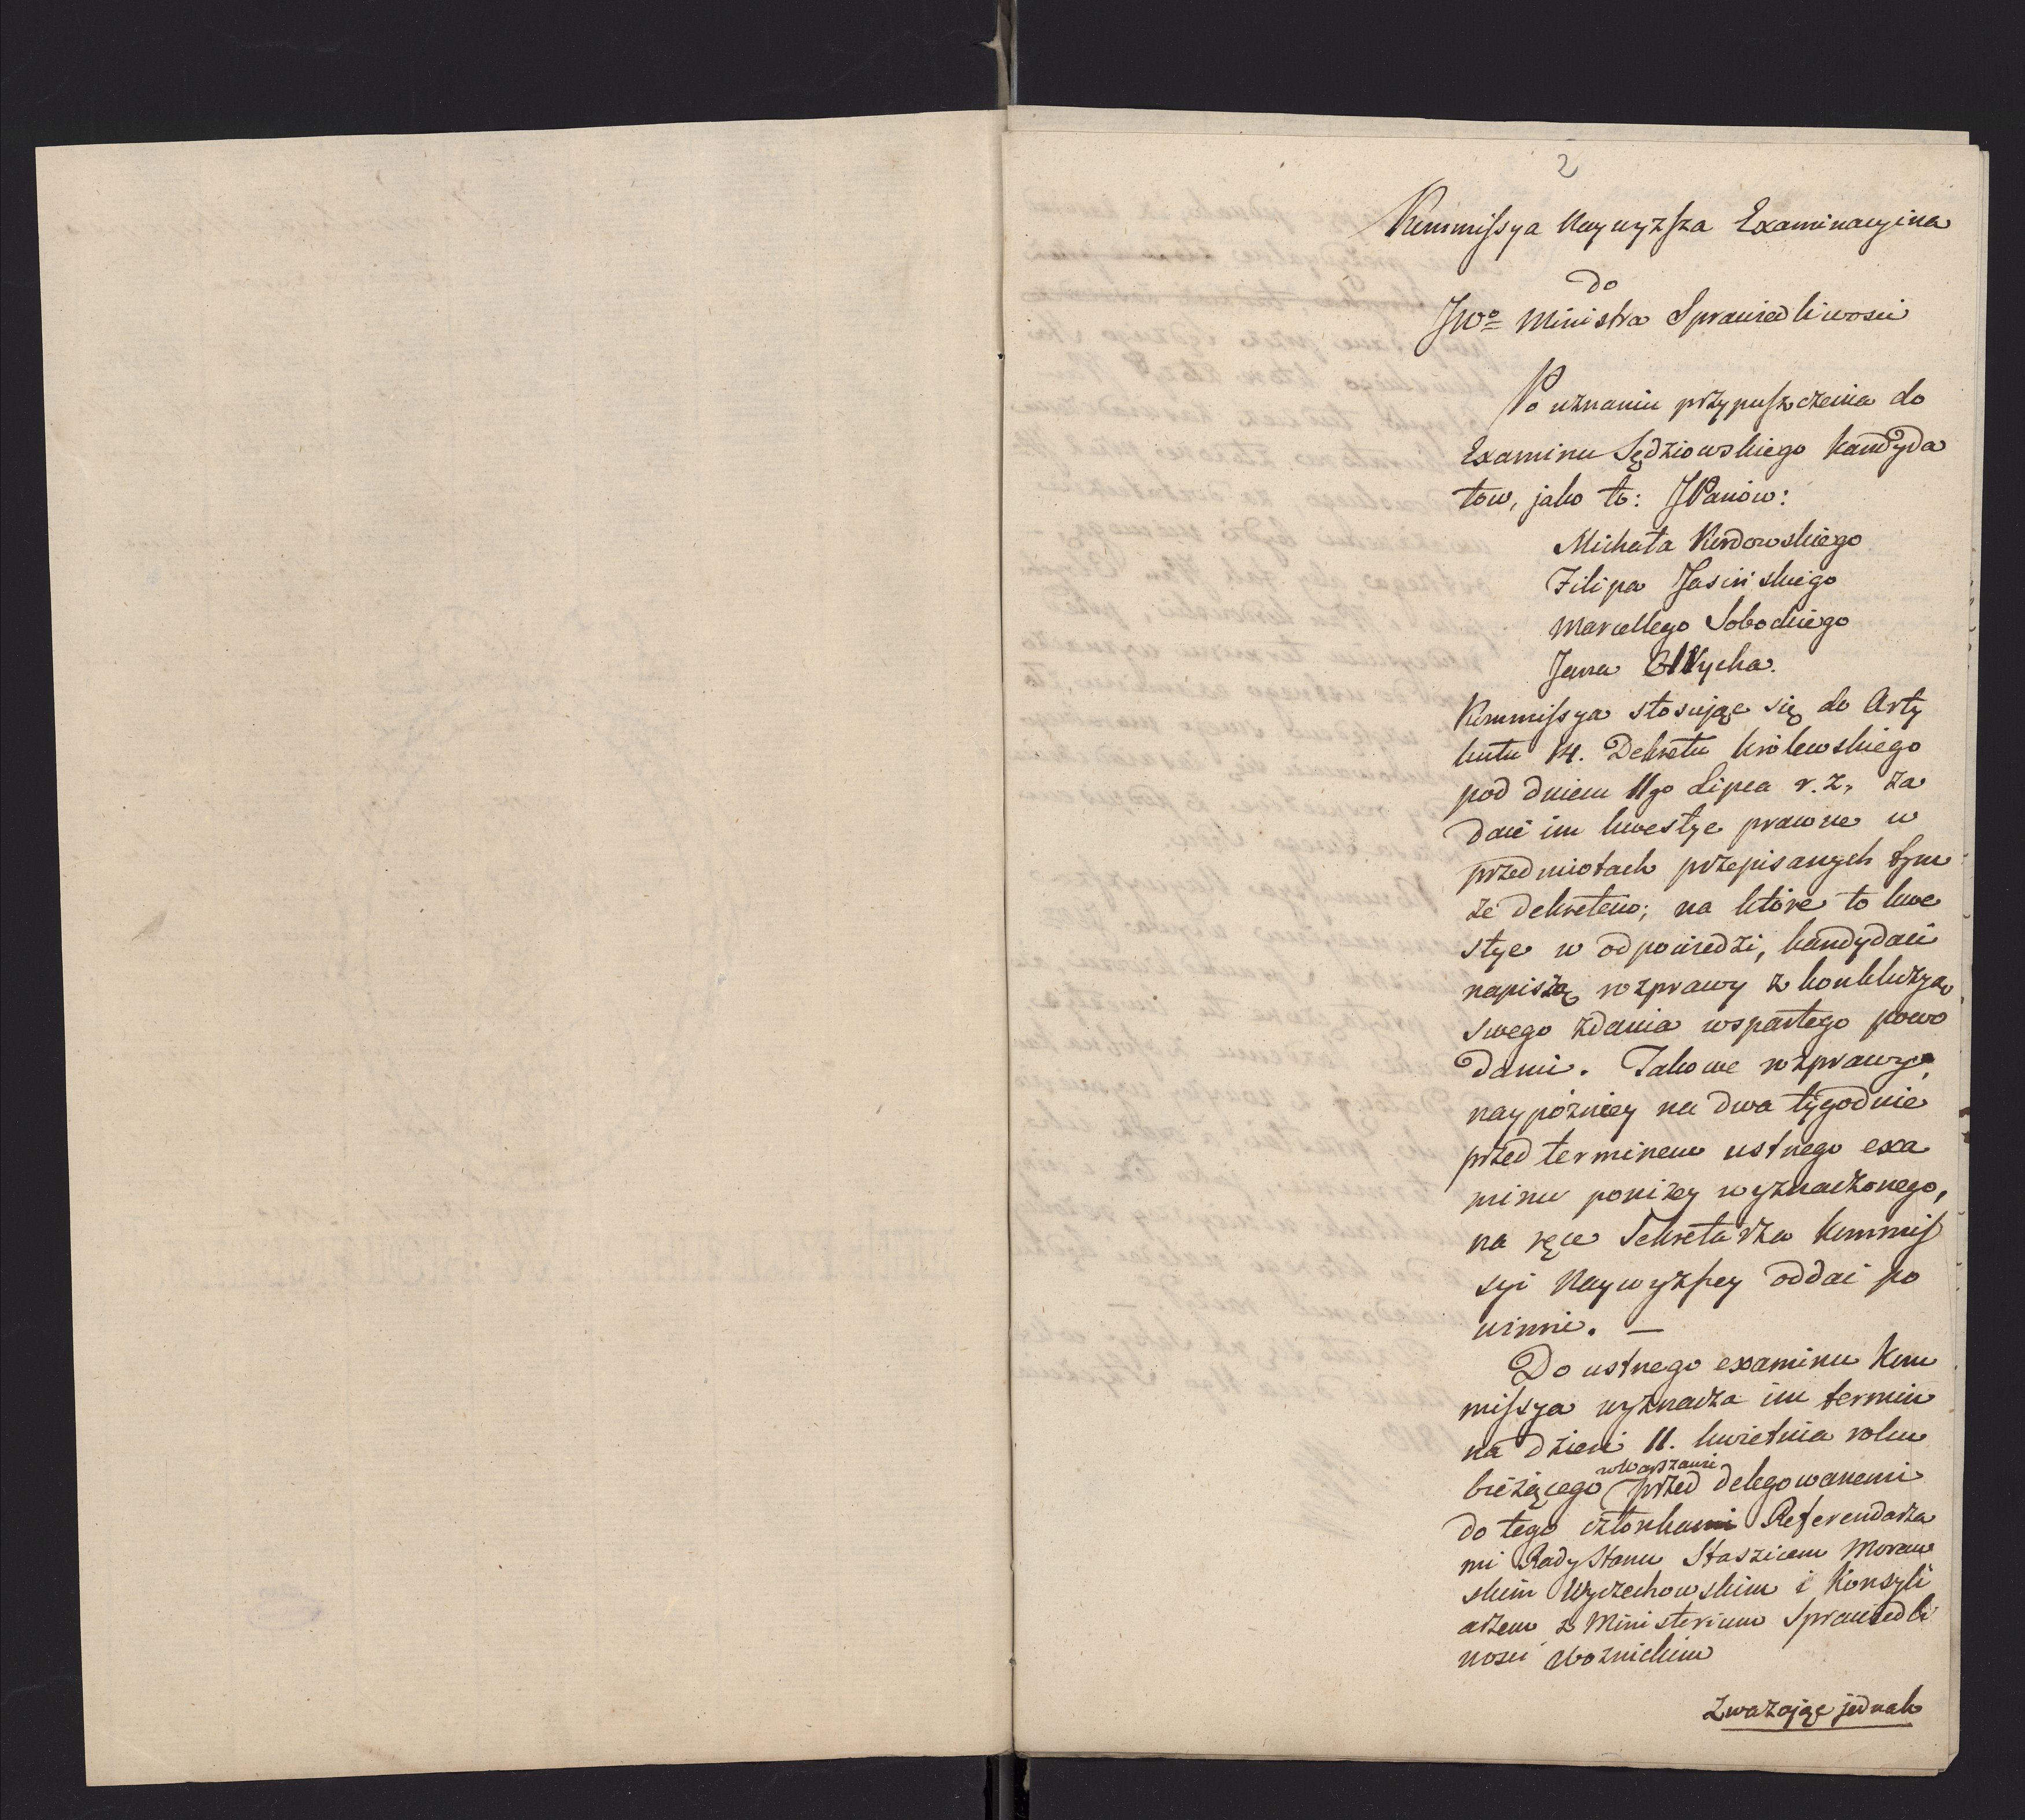 2
Kommissya Naywyższa Examinacyina
do
JWo Ministra Sprawiedliwości
Po uznaniu przypuszczenia do
Examinu Sędziowskiego kandyda
tow, jako to: JPanów:
Michała Kurdowskiego
Filipa Jasińskiego
Marcellego Sobockiego
Jana
Kommissya stosując się do Arty
kułu 14. Dekretu królewskiego
pod dniem 11go Lipca r. z. za
dać im kwestye prawne w
przedmiotach przepisanych tym
że dekretem; na które to kwe
stye w odpowiedzi, kandydaci
napiszą rozprawy z konkluzyą
swego zdania wspartego powo
dami. Takowe rozprawy,
naypóźniey na dwa tygodnie
przed terminem ustnego exa
minu poniżey wyznaczonego,
na ręce Sekretarza Kommis
syi Naywyższey oddać po
winni. —
Do ustnego examinu Kom
missya wyznacza im termin
na dzień 11. kwietnia roku
w Warszawie
bieżącego przed delegowanemi
do tego członkami Referendarza
mi Rady Stanu Staszicem Moraw
skim Wyczechowskim i Konsyli
arzem z Ministerium Sprawiedli
wości Woznickim
Zważając jednak